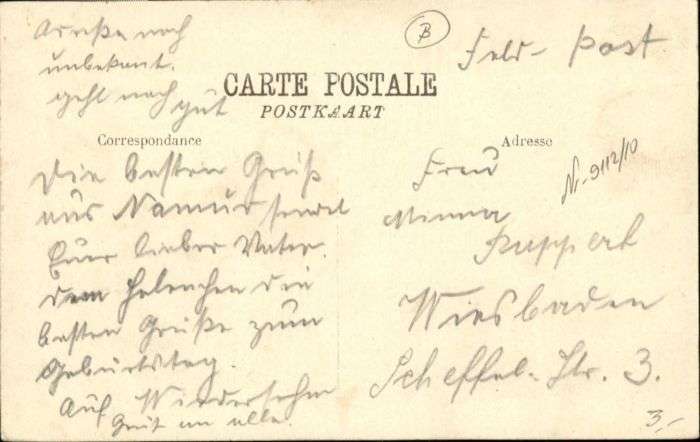 Adreße noch
unbekant.
geht noch gut
B
Feld-Post
CARTE POSTALE
POSTKAART
Correspondance
Adresse
Die besten Grüß
aus Namur sendet
Euer lieber Vater.
dem Helenchen die
besten Grüße zum
Geburtstag.
Auf Wiedersehn
Gruß an alle.
Frau
Minna
Ruppert
Wiesbaden
Scheffel-Str. 3.
Nr-9112/10
3,-